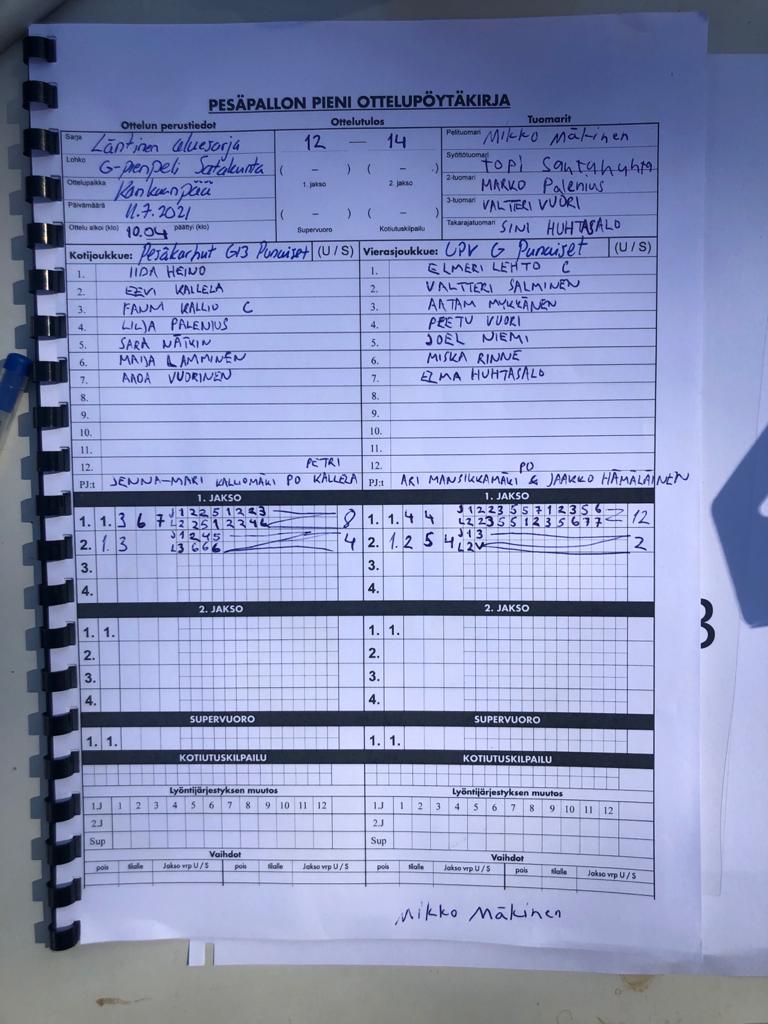 PESÄPALLON PIENI OTTELUPÖYTÄKIRJA
Ottelun perustiedot Ottelutulos Tuomarit
Sarja Läntinen aluesarja 12 — 14 Pelituomari Mikko Mäkinen
Lohko G-pienpeli Satakunta ( — ) ( — ) Syöttötuomari TOPI
Ottelupaikka Kankaanpää 1. jakso 2. jakso 2-tuomari MARKO Palenius
Päivämäärä 11.7.2021 ( — ) ( — ) 3-tuomari VALTTERI VUORI
Ottelu alkoi (klo) 10.04 päättyi (klo) Supervuoro Kotiutuskilpailu Takarajatuomari SINI HUHTASALO
Kotijoukkue: Pesäkarhut G13 Punaiset (U / S) Vierasjoukkue: UPV G Punaiset (U / S)
1. IIDA HEINO 1. ELMERI LEHTO C
2. EEVI KALLELA 2. VALTTERI SALMINEN
3. FANNI KALLIO C 3. AATAM MYKKÄNEN
4. LILJA PALENIUS 4. PEETU VUORI
5. SARA NÄTKIN 5. JOEL NIEMI
6. MAIJA LAMMINEN 6. MISKA RINNE
7. AADA VUORINEN 7. ELMA HUHTASALO
8. 8.
9. 9.
10. 10.
11. 11.
12. PETRI 12. PO
PJ:t JENNA-MARI KALLIOMÄKI PO KALLELA PJ:t ARI MANSIKKAMÄKI & JAAKKO HÄMÄLÄINEN
1. JAKSO 1. JAKSO
1. 1. 3 6 7 J 1 2 2 5 1 2 2 3 8 1. 1. 4 4 J 1 2 2 3 5 5 7 1 2 3 5 6 12
L 2 2 5 1 2 2 4 6 L 2 2 3 5 5 1 2 3 5 6 7 7
2. 1. 3 J 1 2 4 5 4 2. 1. 2 5 4 J 1 3 2
L 3 6 6 6 L 2 V
3. 3.
4. 4.
2. JAKSO 2. JAKSO
1. 1. 1. 1.
2. 2.
3. 3.
4. 4.
SUPERVUORO SUPERVUORO
1. 1. 1. 1.
KOTIUTUSKILPAILU KOTIUTUSKILPAILU
Lyöntijärjestyksen muutos Lyöntijärjestyksen muutos
1.J 1 2 3 4 5 6 7 8 9 10 11 12 1.J 1 2 3 4 5 6 7 8 9 10 11 12
2.J 2.J
Sup Sup
Vaihdot Vaihdot
pois tilalle Jakso vrp U / S pois tilalle Jakso vrp U / S pois tilalle Jakso vrp U / S pois tilalle Jakso vrp U / S
Mikko Mäkinen